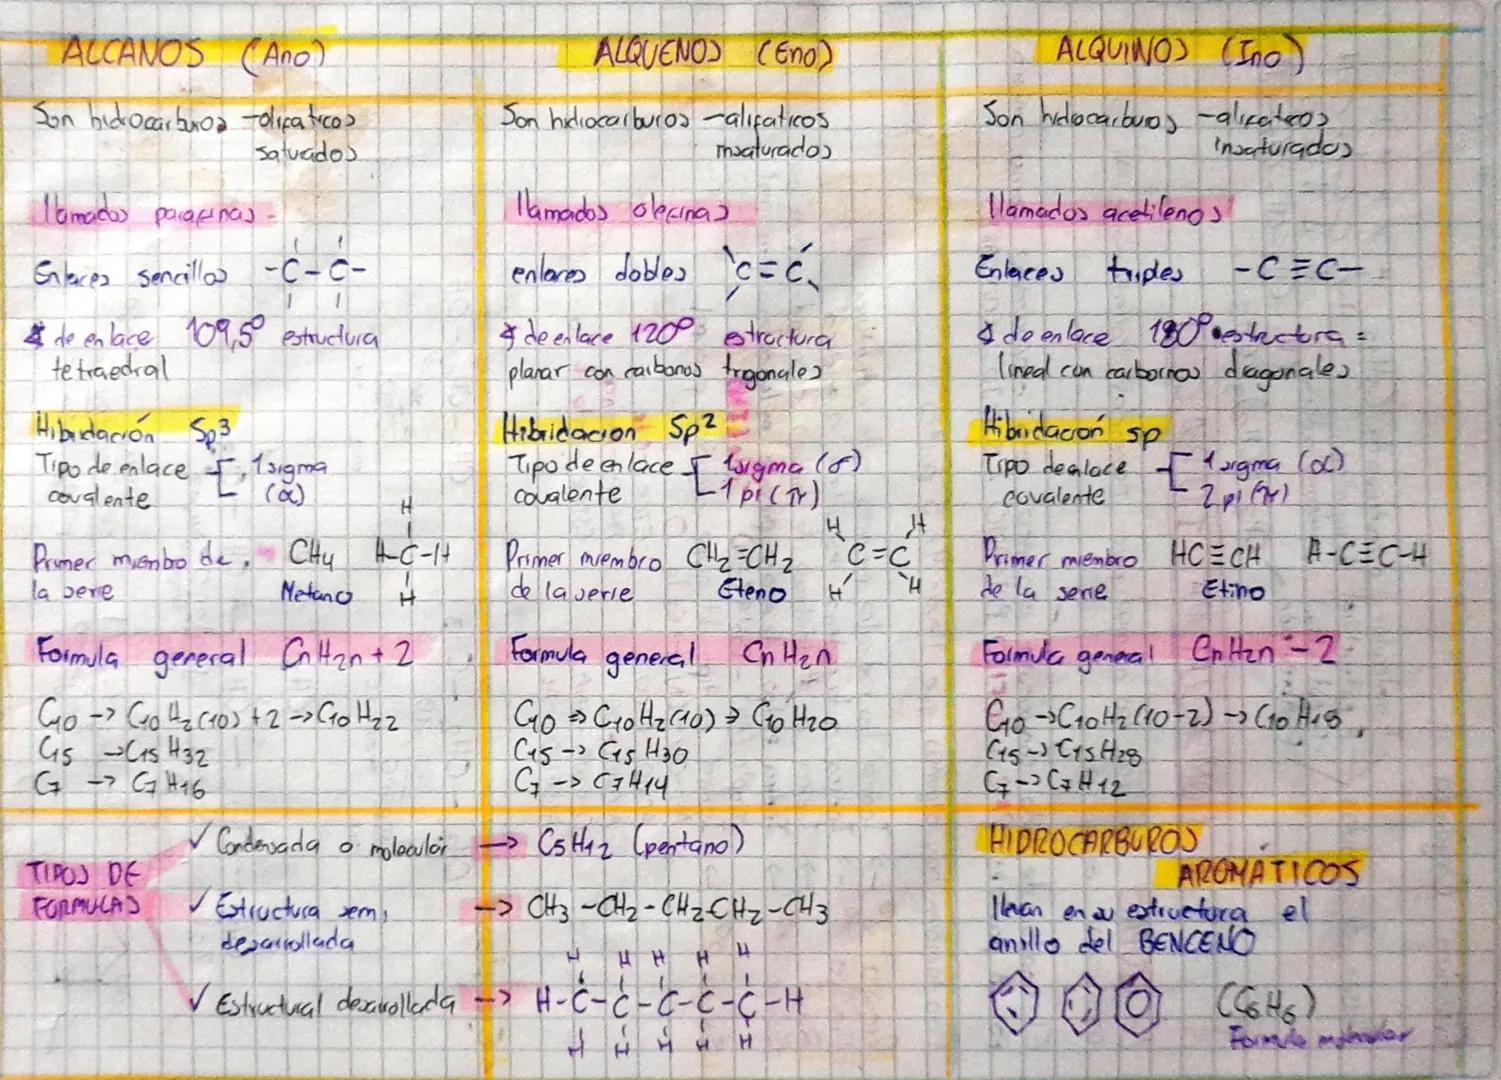 ALCANOS (Ano)
Son hidrocarburos -alifaticos
saturados
llamados parafinas -
Enlaces sencillos -C-C-
∡ de enlace 109,5° estructura
tetraedral
Hibridación Sp3
Tipo de enlace 1 sigma
covalente (α)
Primer miembro de CH4
la serie Metano
H
H-C-H
H
Formula general CnH2n+2
C10 -> C10H2(10)+2 -> C10H22
C15 -> C15H32
C7 -> C7H16
ALQUENOS (Eno)
Son hidrocarburos -alifaticos
insaturados
llamados olefinas
enlaces dobles C=C
∡ de enlace 120° estructura
planar con carbonos trigonales
Hibridacion Sp2
Tipo de enlace 1 sigma (σ)
covalente 1 pi (π)
Primer miembro CH2=CH2
de la serie Eteno
H H
C=C
H H
Formula general CnH2n
C10 => C10H2(10) => C10H20
C15 -> C15H30
C7 -> C7H14
ALQUINOS (Ino)
Son hidrocarburos -alifaticos
insaturados
llamados acetilenos
Enlaces triples -C≡C-
∡ de enlace 180° estructura =
lineal con carbornos diagonales
Hibridación sp
Tipo de enlace 1 sigma (α)
covalente 2 pi (π)
Primer miembro HC≡CH H-C≡C-H
de la serie Etino
Formula general CnH2n-2
C10 -> C10H2(10-2) -> C10H18
C15 -> C15H28
C7 -> C7H12
TIPOS DE
FORMULAS
✓ Condensada o molecular -> C5H12 (pentano)
✓ Estructura semi -> CH3-CH2-CH2-CH2-CH3
desarrollada
H H H H H
✓ Estructural desarrollada -> H-C-C-C-C-C-H
H H H H H
HIDROCARBUROS
AROMATICOS
llevan en su estructura el
anillo del BENCENO
(C6H6)
Formula molecular